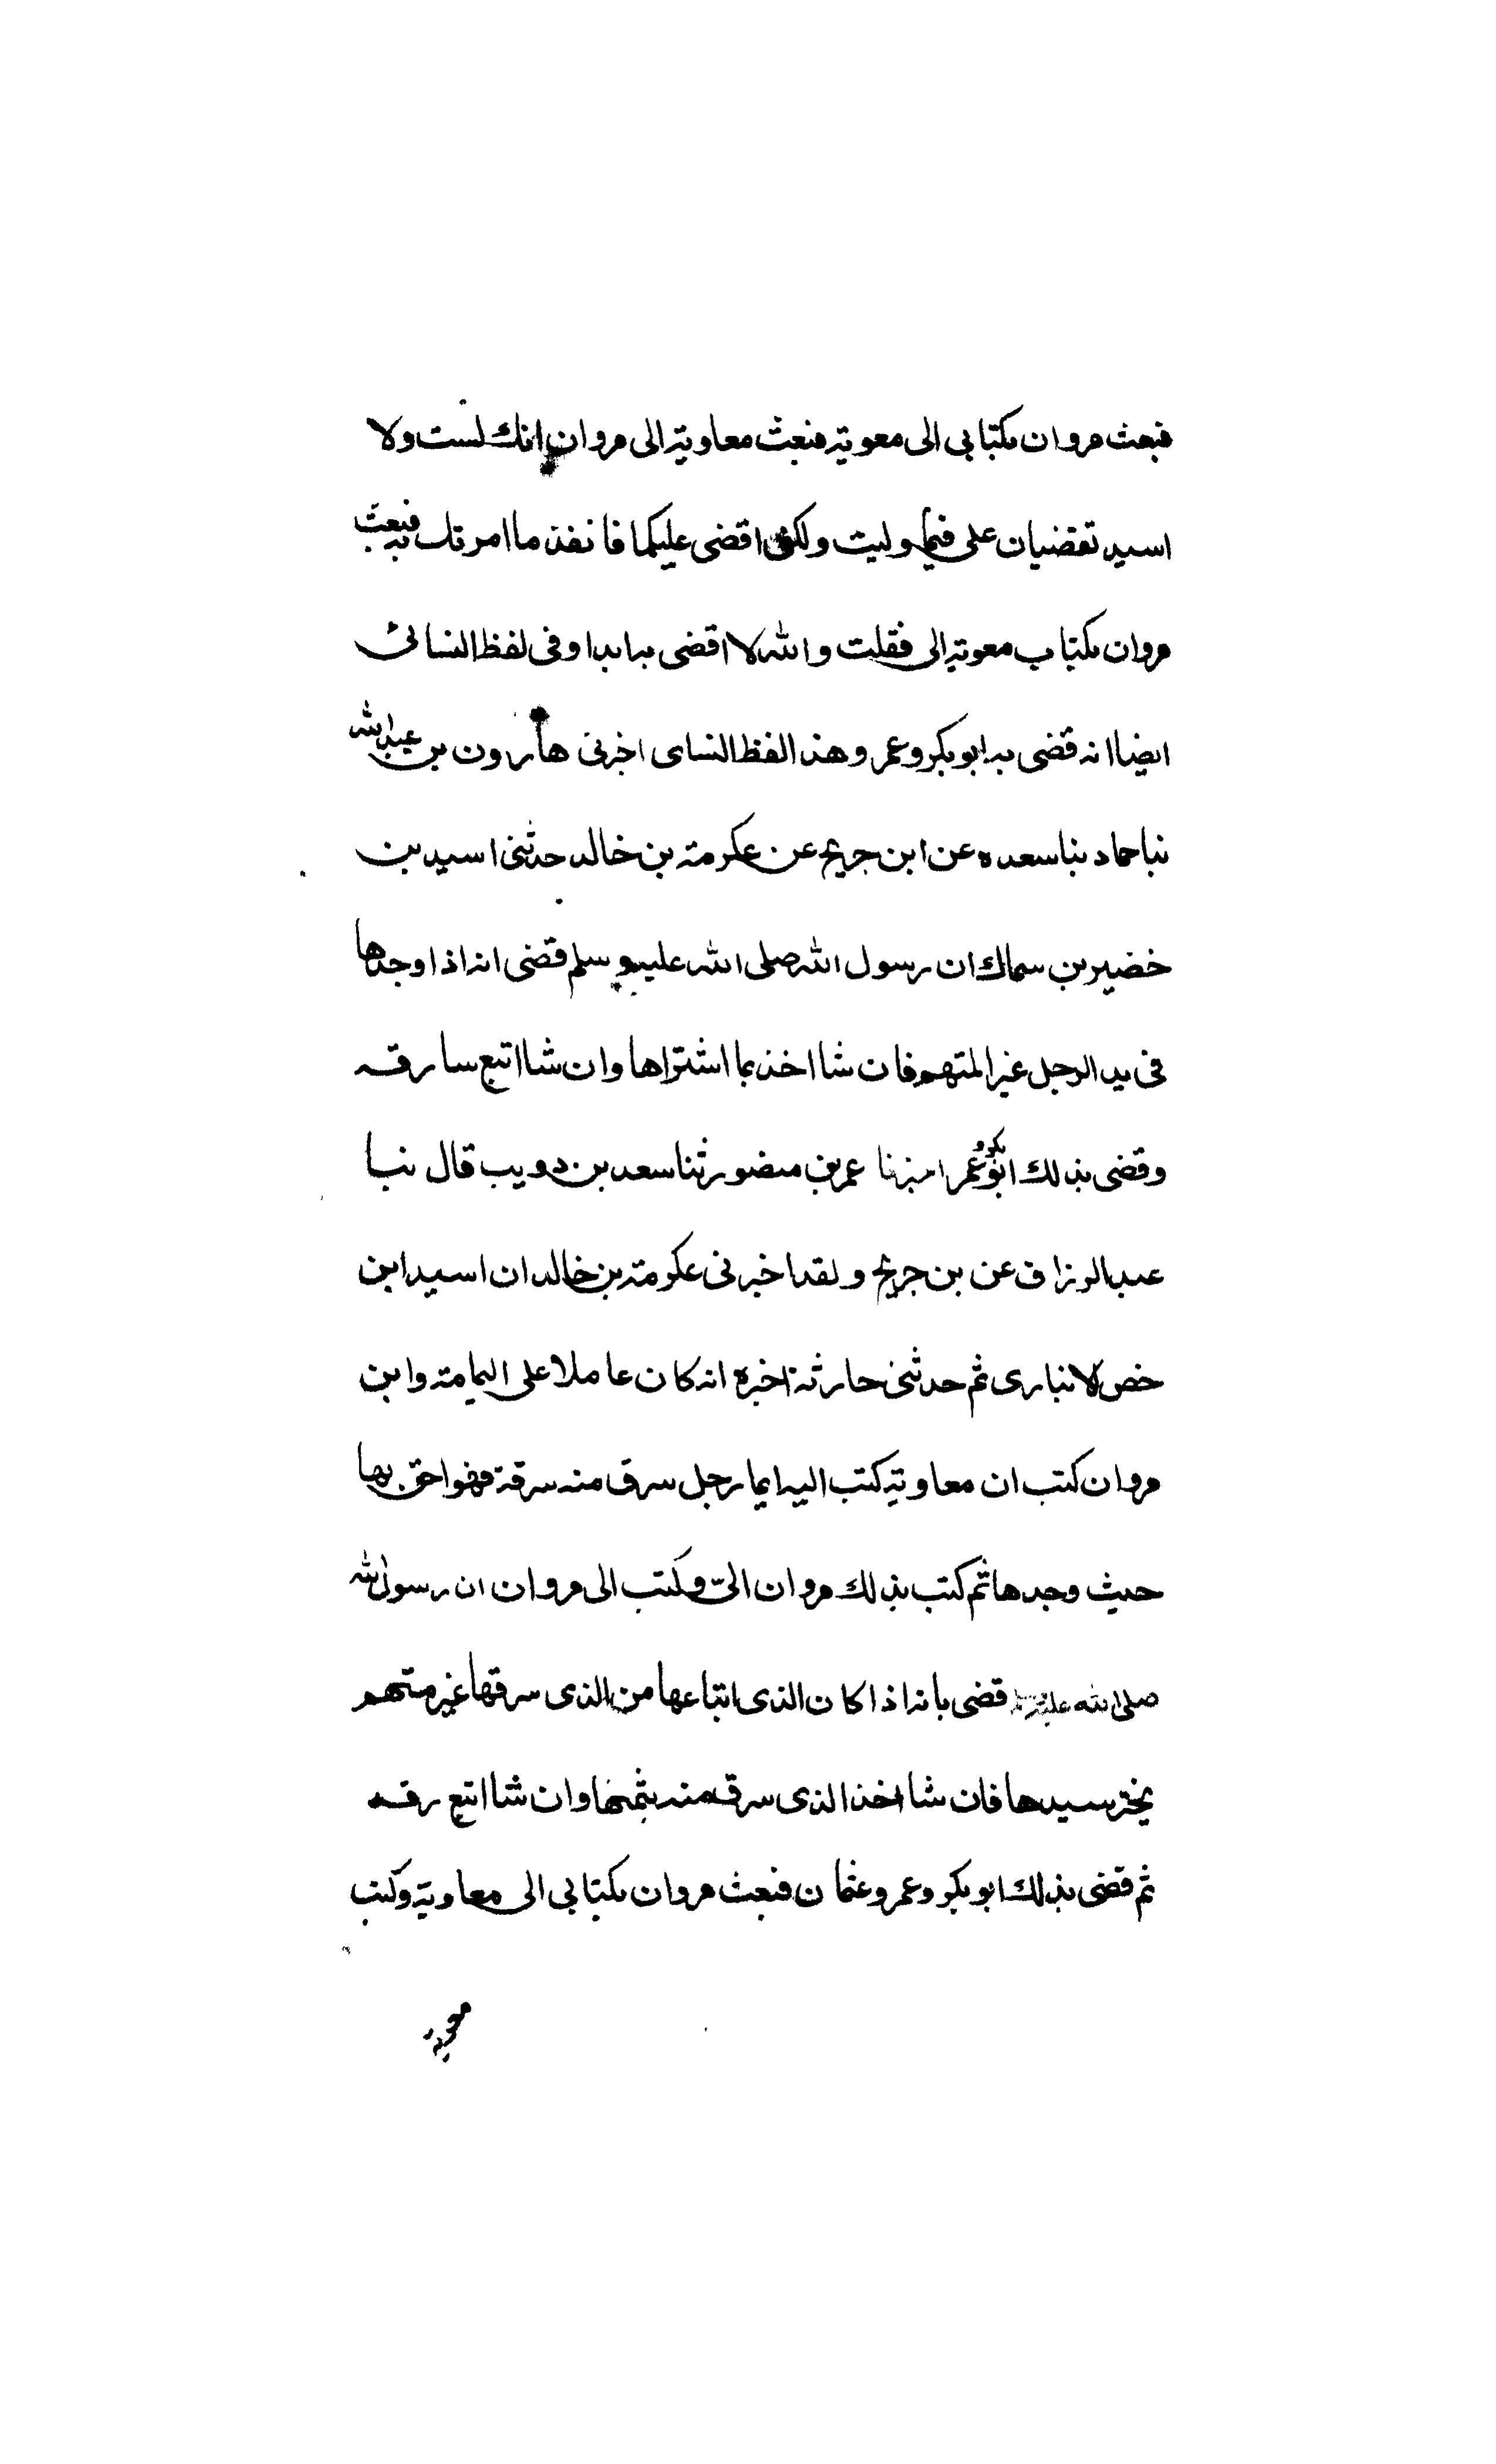 فبعث مروان بكتابى الى معوية فبعث معاوية الى مروان انك لست ولا
اسيد تقضيان على فيما وليت ولكنى اقضى عليكما فانفذ ما امرتك به فبعث
مروان بكتاب معوية الى فقلت والله لا اقضى به ابدا وفى لفظ النسائى
ايضا انه قضى به ابو بكر وعمر وهذا لفظ النساى اخبرنى هارون بن عبد الله
نبا حماد بنا سعده عن ابن جريج عن عكرمة بن خالد حدثنى اسيد بن
خضير بن سماك ان رسول الله صلى الله عليه وسلم قضى انه اذا وجدها
فى يد الرجل غير المتهم فان شا اخذ بما اشتراها وان شا اتبع سارقه
وقضى بذلك ابو بكر وعمر اخبرنا عمر بن منصور ثنا سعد بن دويب قال نبا
عبد الرزاق عن بن جريج ولقد اخبرنى عكرمة بن خالد ان اسيد ابن
خص الانبارى ثم حدثنى حارثة اخبره انه كان عاملا على اليمامة وابن
مروان كتب ان معاوية كتب اليه ايما رجل سرق منه سرقة فهو احق بها
حيث وجدها ثم كتب بذلك مروان الىّ وكتب الى مروان ان رسول الله
صلى الله عليه قضى بانه اذا كان الذى ابتاعها من الذى سرقها غير متهم
يخير سيدها فان شا اخذ الذى سرق منه بثمنها وان شا اتبع رقه
ثم قضى بذلك ابو بكر وعمر وعثمان فبعث مروان بكتابى الى معاوية وكتب
معوية